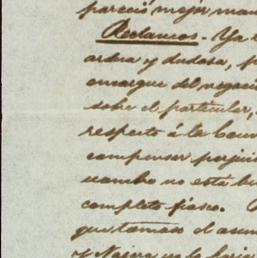 pareció mejor man
Reclamos. Ya
ardua y dudosa, p
encargue del negoci
sobre el particular,
respecto á la Con
compensar perjui
cuanto no está bi
completo fiasco.
que tomáis el asun
y Najera no lo haria